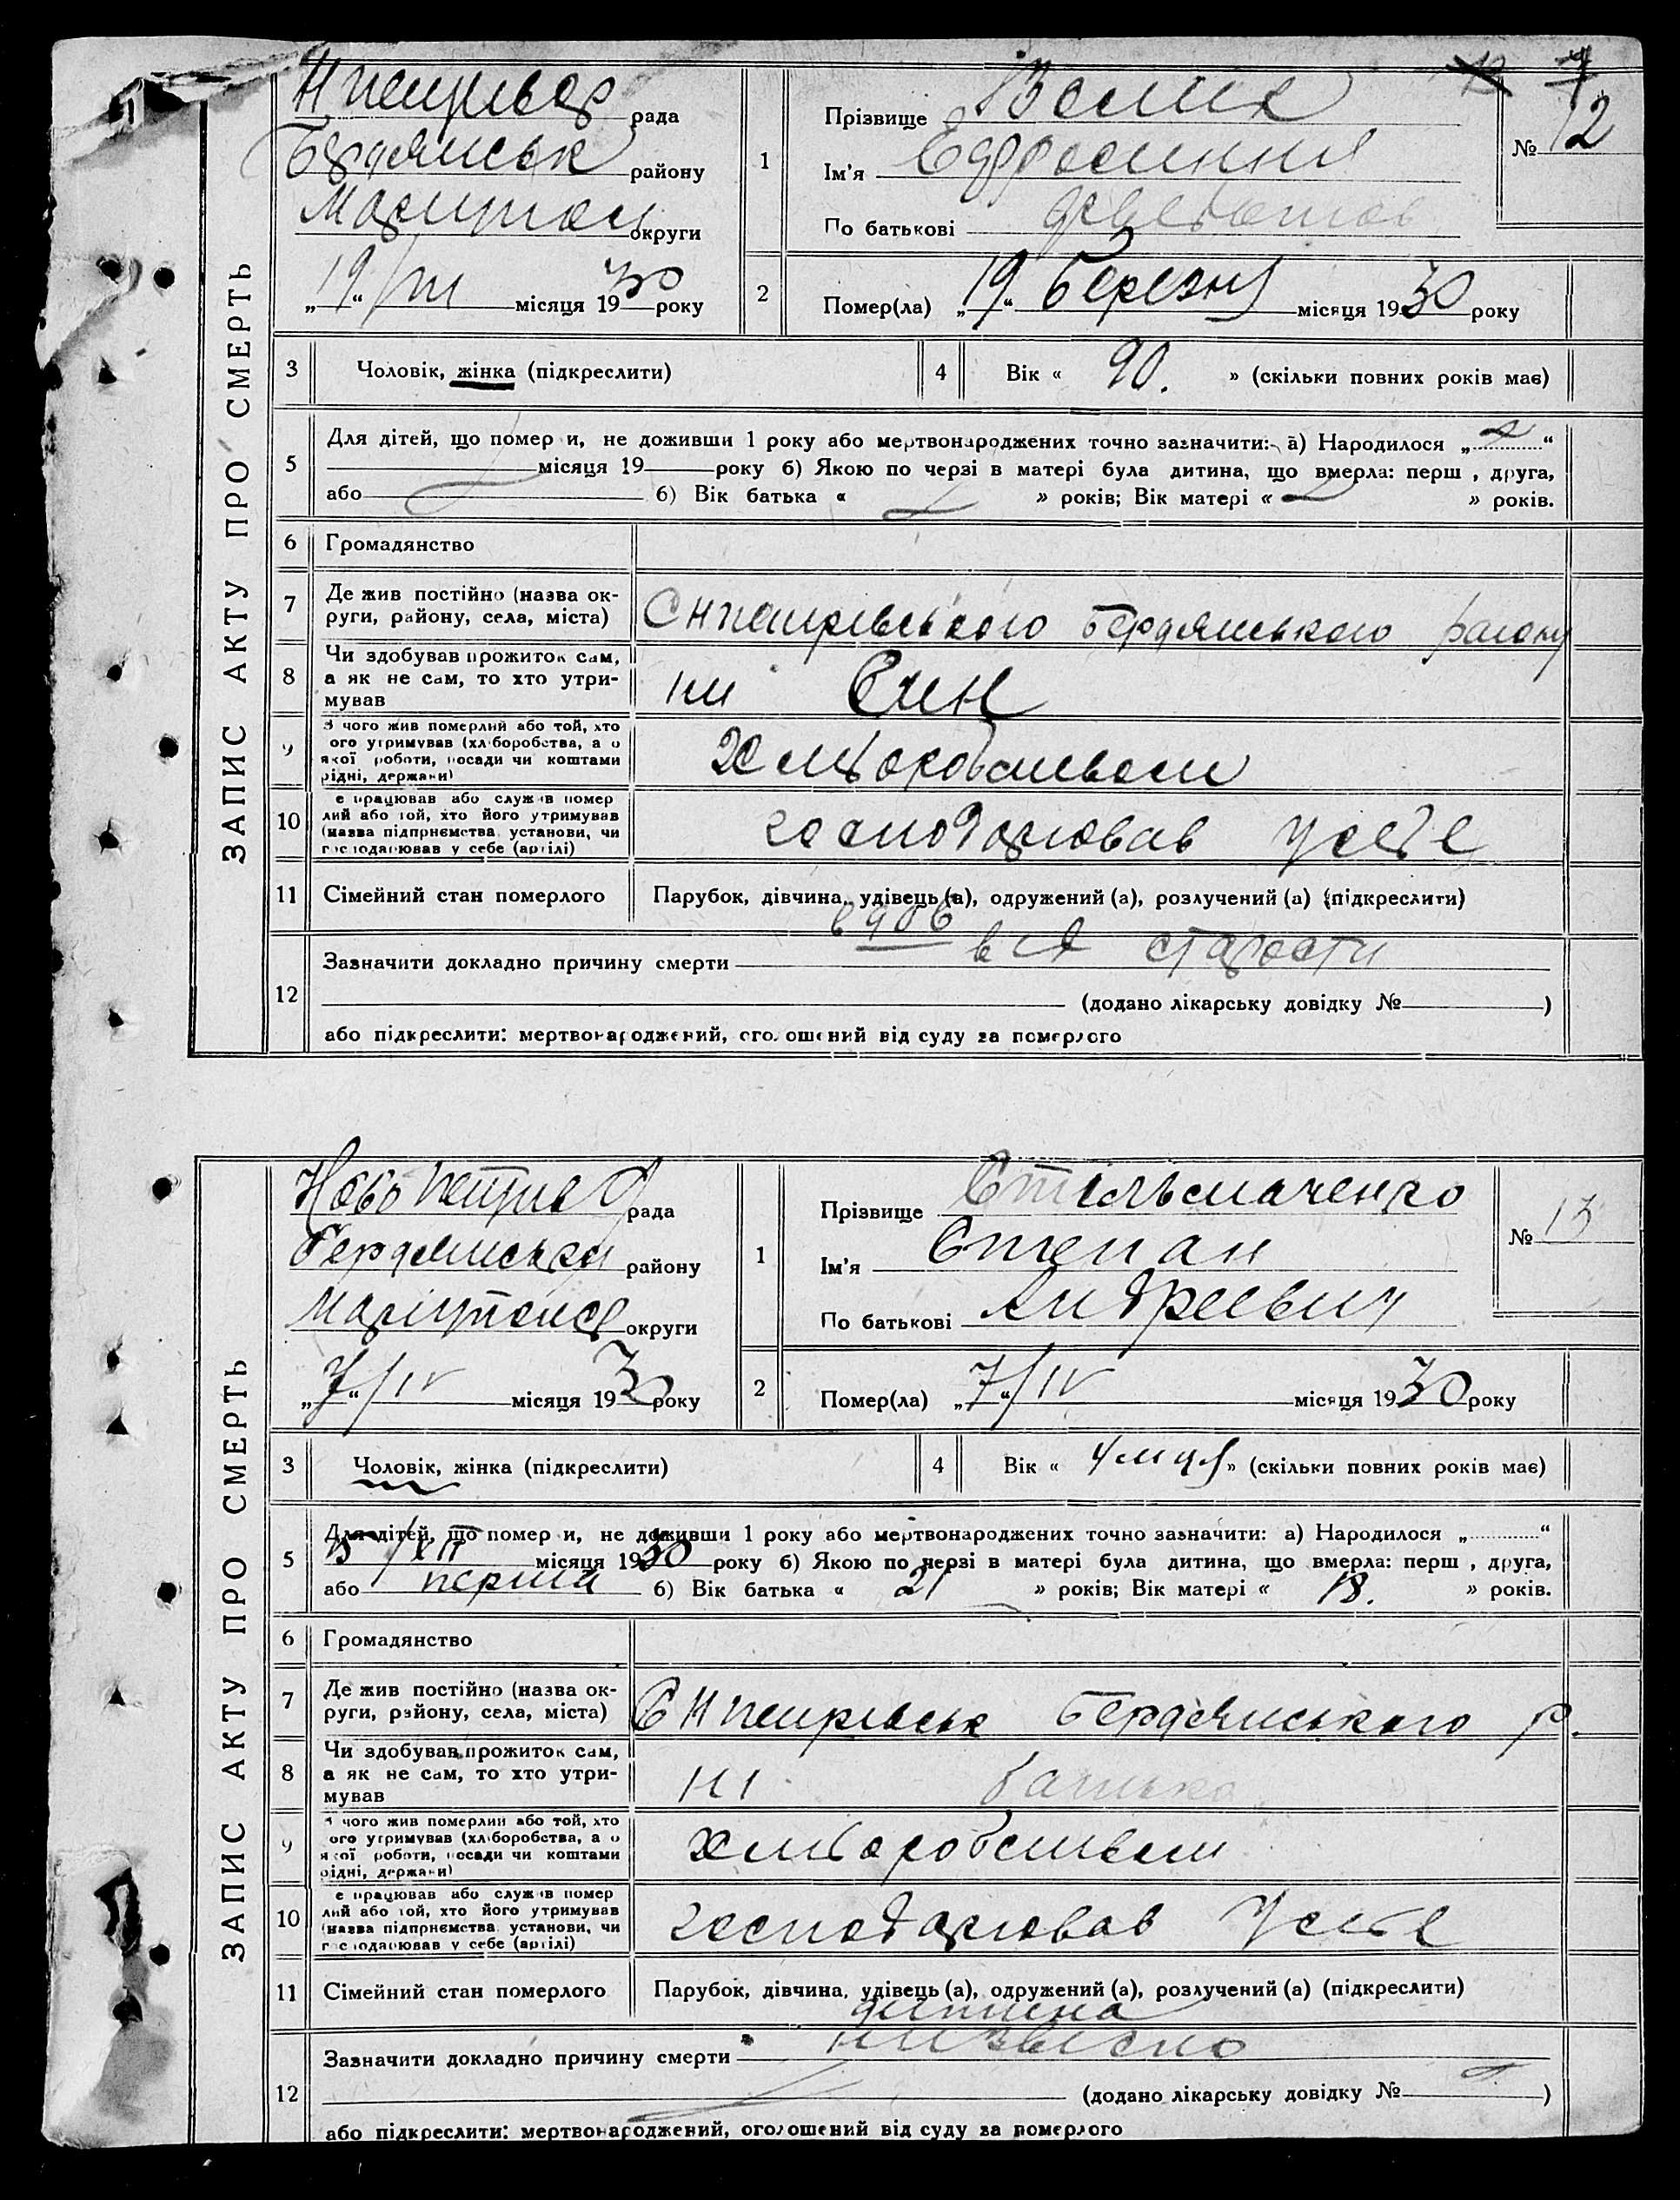 ЗАПИС АКТУ ПРО СМЕРТЬ
рада
Бердянськ району
округи
„19“ /III місяця 1930 року
1
Прізвище
Ім'я
По батькові
№ 12
2
Помер(ла) „19“ Березня місяця 1930 року
3 Чоловік, жінка (підкреслити)
4 Вік « 90. » (скільки повних років має)
5
Для дітей, що помер и, не доживши 1 року або мертвонароджених точно зазначити: а) Народилося „ “
місяця 19 року б) Якою по черзі в матері була дитина, що вмерла: перш , друга,
або б) Вік батька « » років; Вік матері « » років.
6 Громадянство
7
Де жив постійно (назва ок-
руги, району, села, міста)
Бердянського району
8
Чи здобував прожиток сам,
а як не сам, то хто утри-
мував
ни Син
9
З чого жив померлий або той, хто
ого утримував (хліборобства, а о
якої роботи, посади чи коштами
рідні, держави)
Хліборобством
10
е працював або служив помер
лий або той, хто його утримував
(назва підприємства установи, чи
господарював у себе (артілі)
господарював у себе
11 Сімейний стан померлого
Парубок, дівчина, удівець (а), одружений (а), розлучений (а) (підкреслити)
вдов
12
Зазначити докладно причину смерти від старости
(додано лікарську довідку № )
або підкреслити: мертвонароджений, оголошений від суду за померлого
ЗАПИС АКТУ ПРО СМЕРТЬ
рада
району
округи
„7“ /IV місяця 1930 року
1
Прізвище Стільмаченко
Ім'я Степан
По батькові Андреевич
№ 13
2
Помер(ла) „7“ /IV місяця 1930 року
3 Чоловік, жінка (підкреслити)
4 Вік « 4 м-ця » (скільки повних років має)
5
Для дітей, що помер и, не доживши 1 року або мертвонароджених точно зазначити: а) Народилося „ “
/XII місяця 1930 року б) Якою по черзі в матері була дитина, що вмерла: перш , друга,
або перша б) Вік батька « 21 » років; Вік матері « 18. » років.
6 Громадянство
7
Де жив постійно (назва ок-
руги, району, села, міста)
Бердянського р.
8
Чи здобував прожиток сам,
а як не сам, то хто утри-
мував
ні батько
9
чого жив померлий або той, хто
ого утримував (хліборобства, а о
якої роботи, посади чи коштами
рідні, держави)
хліборобством
10
е працював або служив помер
лий або той, хто його утримував
(назва підприємства установи, чи
господарював у себе (артілі)
господарював у себе
11 Сімейний стан померлого
Парубок, дівчина, удівець (а), одружений (а), розлучений (а) (підкреслити)
дитина
12
Зазначити докладно причину смерти
(додано лікарську довідку № )
або підкреслити: мертвонароджений, оголошений від суду за померлого